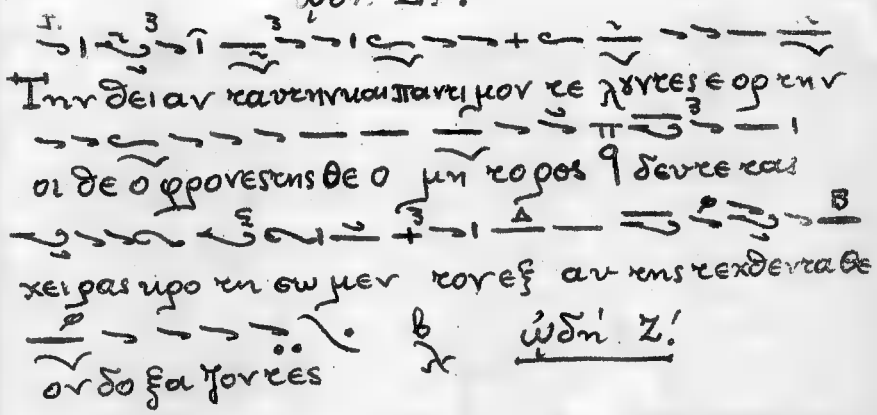 Την θειαν ταυτηνκαιπαντιμον τε λȣντες ε ορ την
οι θε ο φρονεςτης θε ο μη τορος δευτε τας
χειρας κρο τη σω μεν τονεξ αυ της τεχθεντα θε
ον δο ξα ζοντες ᾠδή Ζ!